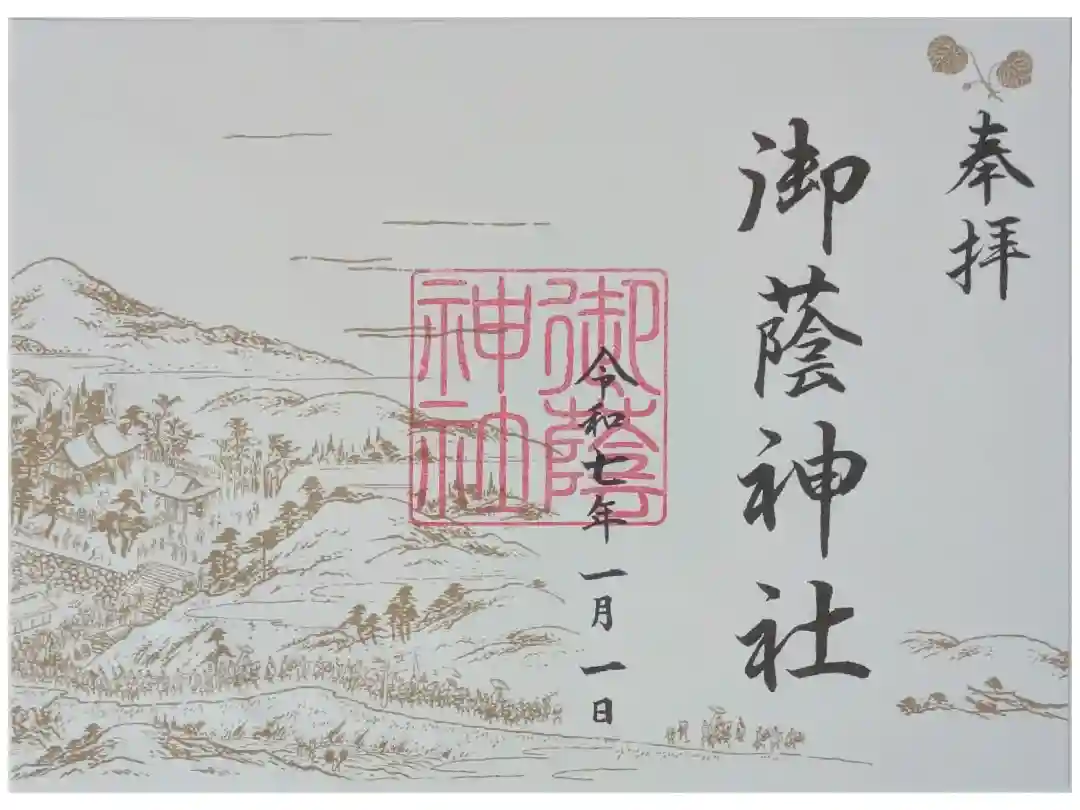 奉拝
御蔭神社
御蔭
神社
令和七年一月一日